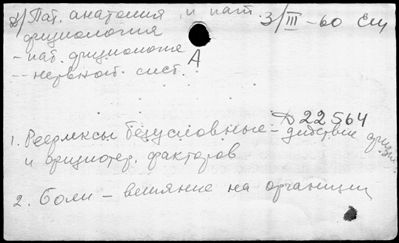 8) Пат. анатомия и пат. 3/III-60 Ем
физиология
- пат. физиология А
-- нервной сист.
Д 22564
1. Рефлексы безусловные - действие физи.
и физиотер. факторов
2. Боли - влияние на организм